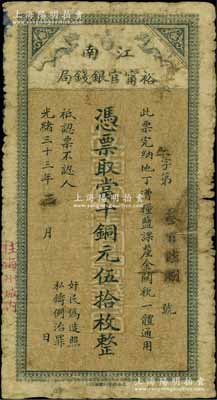 上海陽明拍賣
江南
裕甯官銀錢局
字第
號
此票完納地丁漕糧鹽課釐金關稅一體通用
憑票取當十銅元伍拾枚整
祇認票不認人
光緒三十三年 月 日
奸民偽造照
私鑄例治罪
上海陽明拍賣